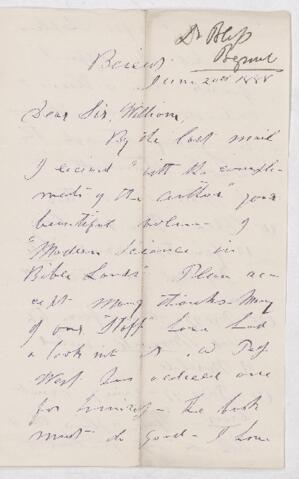 Dr Bliss
Beyrut
Beirut
June 20th 1888
Dear Sir William,
By the last mail
I received "with the compli-
ments of the author" your
beautiful volume of
"Modern Science in
Bible Lands" Please acc-
ept many thanks - Many
of our "Staff" have had
a look into it. &
West has ordered one
for himself - The book
must do good - I have